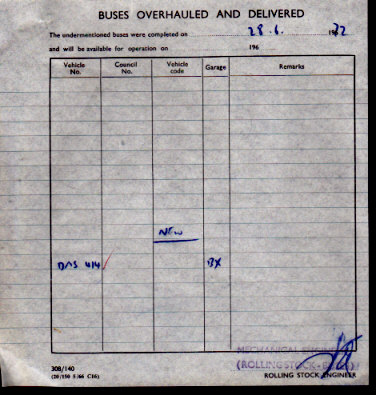 BUSES OVERHAULED AND DELIVERED
The undermentioned buses were completed on 28.6. 1972
and will be available for operation on 196
Vehicle No. Council No. Vehicle code Garage Remarks
NEW
DMS 414 BX
MECHANICAL ENGINEER
(ROLLING STOCK-
308/140
(20/150 5/66 C16)
ROLLING STOCK ENGINEER